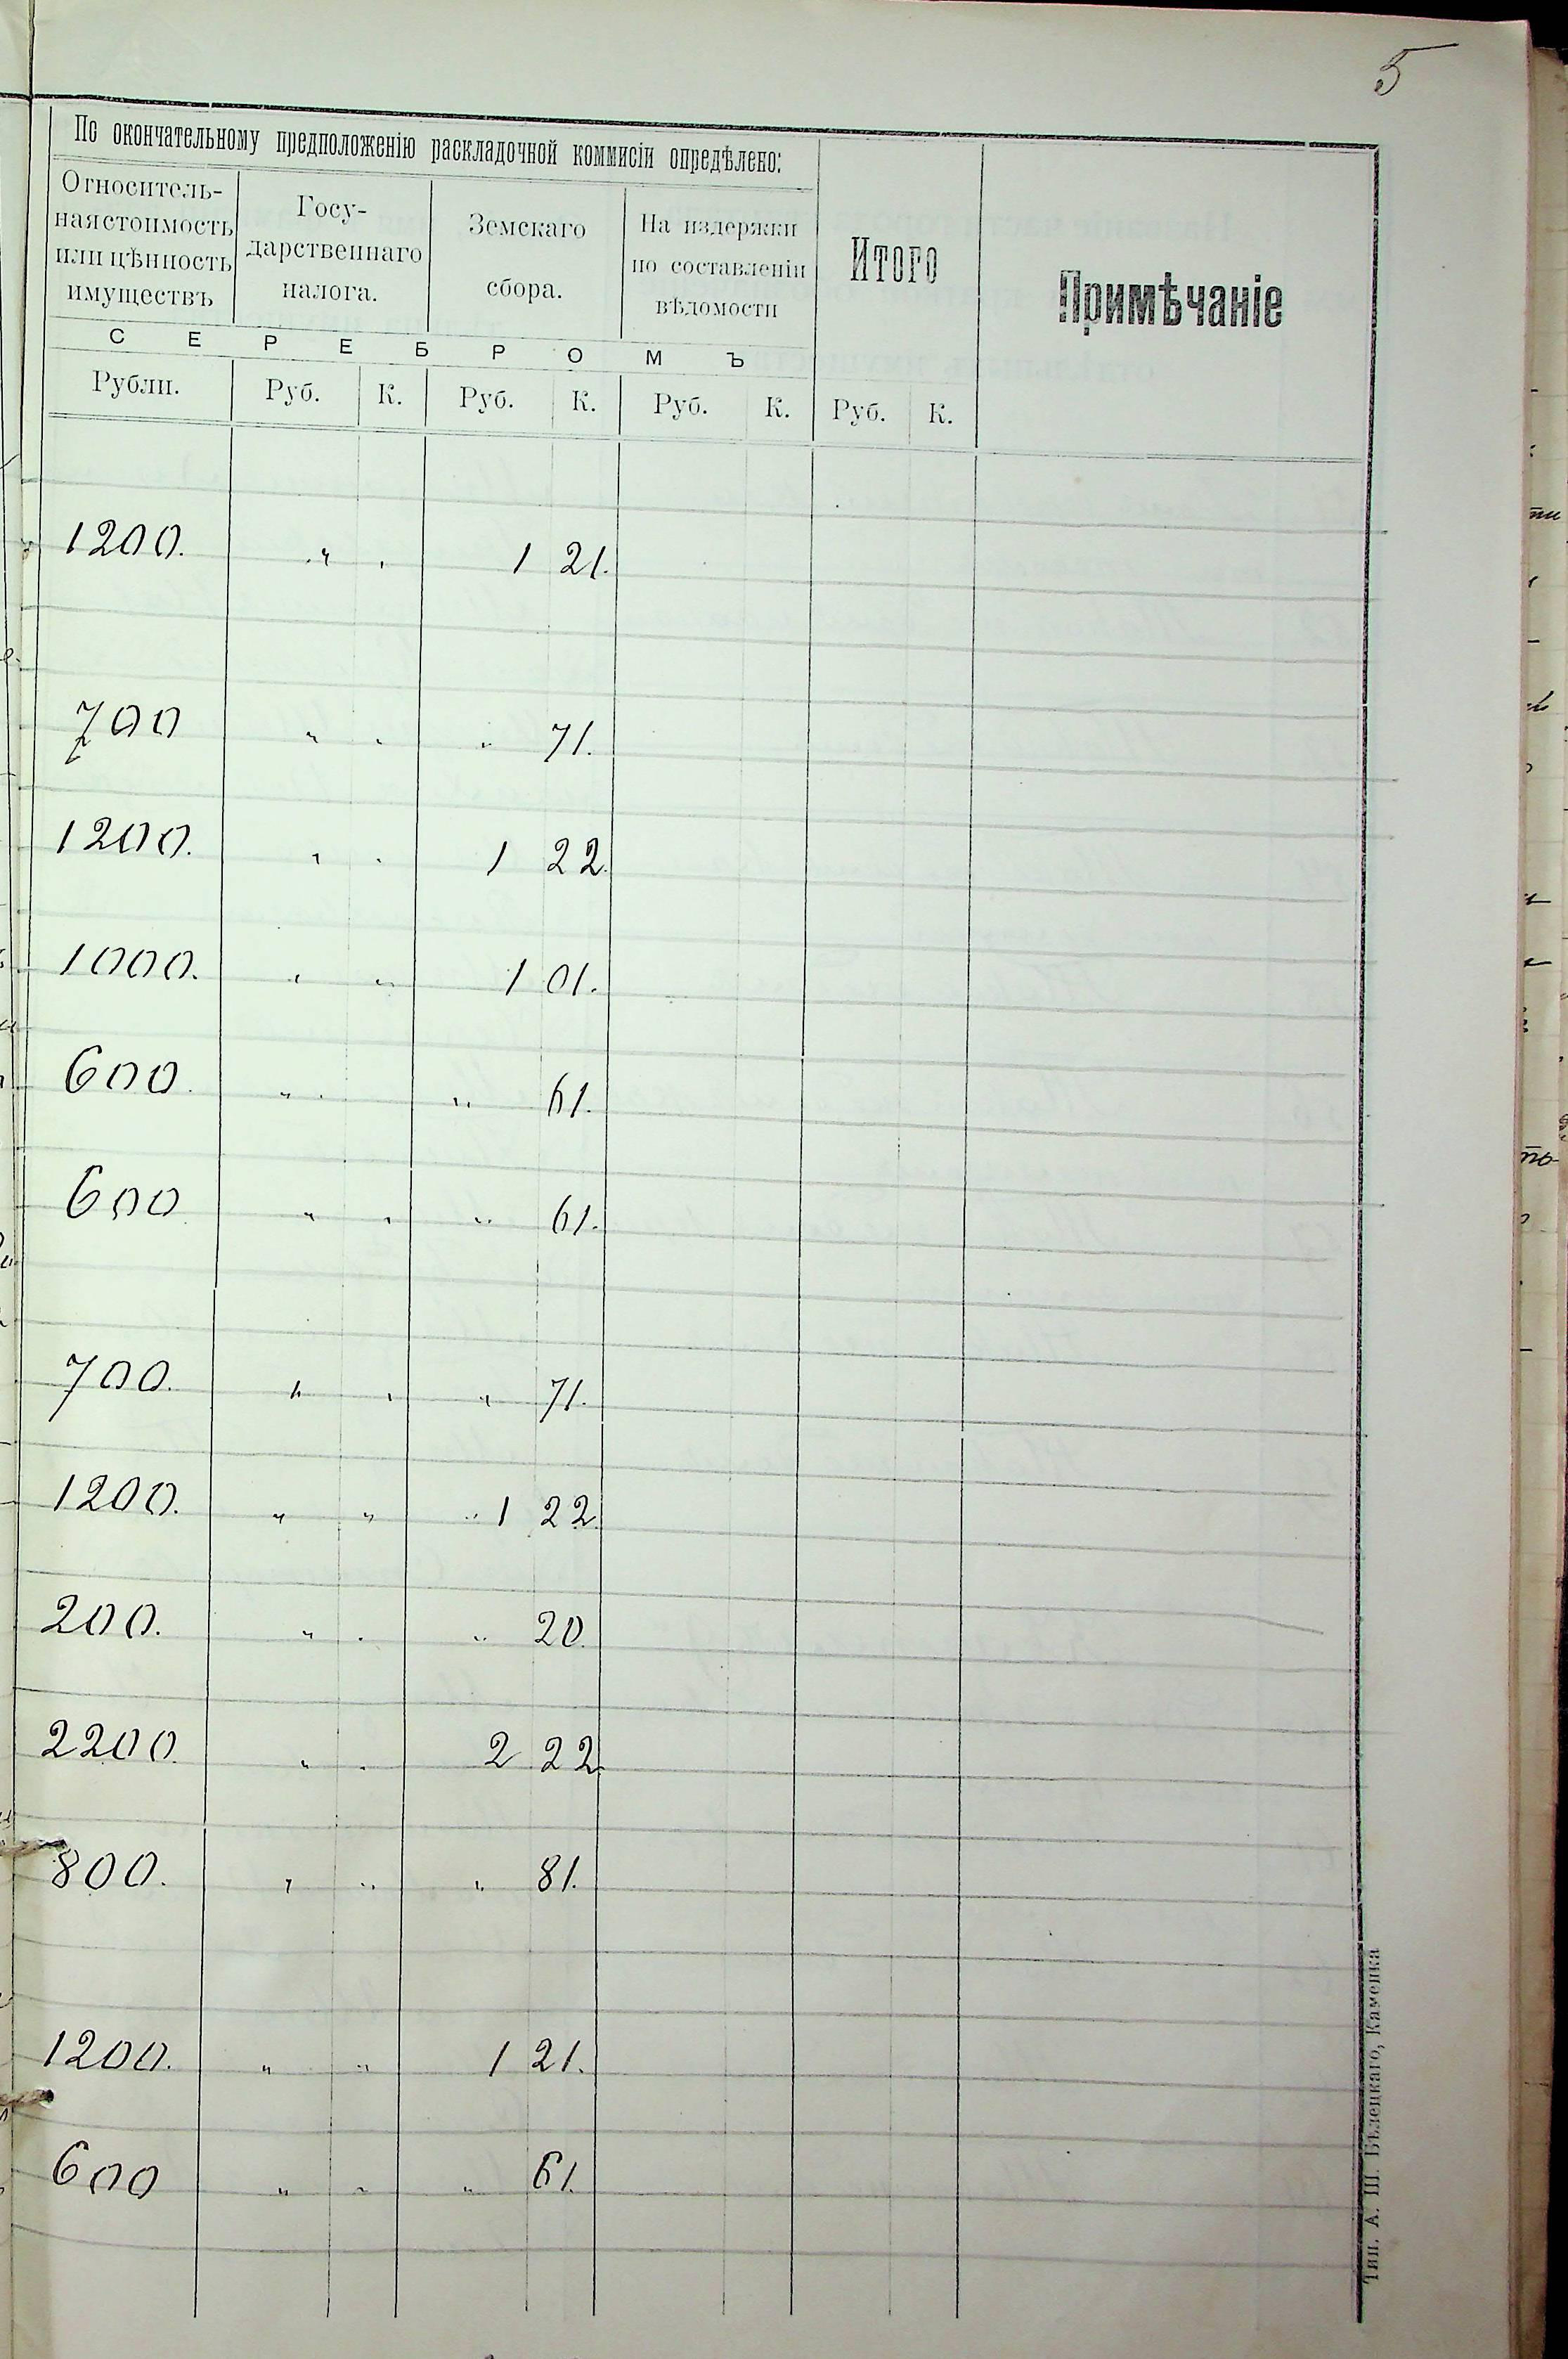 5
По окончательному предположенію раскладочной коммисіи опредѣлено:
Относитель-
ная стоимость
или цѣнность
имуществъ
Госу-
дарственнаго
налога.
Земскаго
сбора.
На издержки
по составленіи
вѣдомости
Итого
Примѣчаніе
С Е Р Е Б Р О М Ъ
Рубли. Руб. К. Руб. К. Руб. К. Руб. К.
1200. " " 1 21.
700 " " " 71.
1200. " " 1 22.
1000. " " 1 01.
600. " " " 61.
600 " " " 61.
700. " " " 71.
1200. " " " 1 22.
200. " " " 20.
2200. " " 2 22.
800. " " " 81.
1200. " " 1 21.
600 " " " 61.
Тип. А. Ш. Бѣлецкаго, Каменка